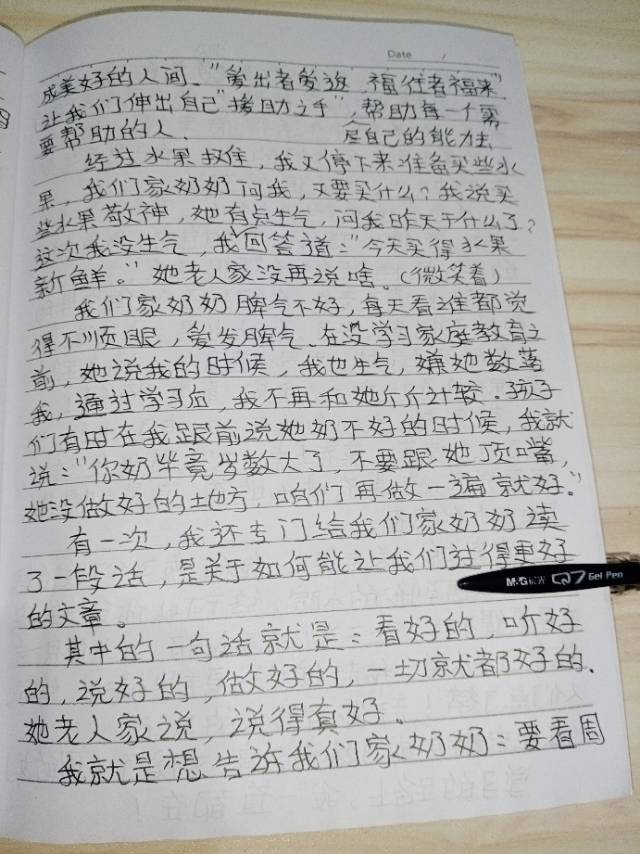 Date /
成美好的人间。"爱出者爱返 福往者福来"
让我们伸出自己"援助之手",帮助每一个需
要帮助的人。 尽自己的能力去
经过水果摊,我又停下来准备买些水
果,我们家奶奶问我,又要买什么?我说买
些水果敬神,她有点生气,问我昨天干什么了?
这次我没生气,我回答道:"今天买得水果
新鲜。"她老人家没再说啥。(微笑着)
我们家奶奶脾气不好,每天看谁都觉
得不顺眼,爱发脾气。在没学习家庭教育之
前,她说我的时候,我也生气,嫌她数落
我,通过学习后,我不再和她斤斤计较。孩子
们有时在我跟前说她奶不好的时候,我就
说:"你奶毕竟岁数大了,不要跟她顶嘴,
她没做好的地方,咱们再做一遍就好。"
有一次,我还专门给我们家奶奶读
了一段话,是关于如何能让我们过得更好
的文章。
M&G晨光 Q7 Gel Pen
其中的一句话就是:看好的,听好
的,说好的,做好的,一切就都好的。
她老人家说,说得真好。
我就是想告诉我们家奶奶:要看周